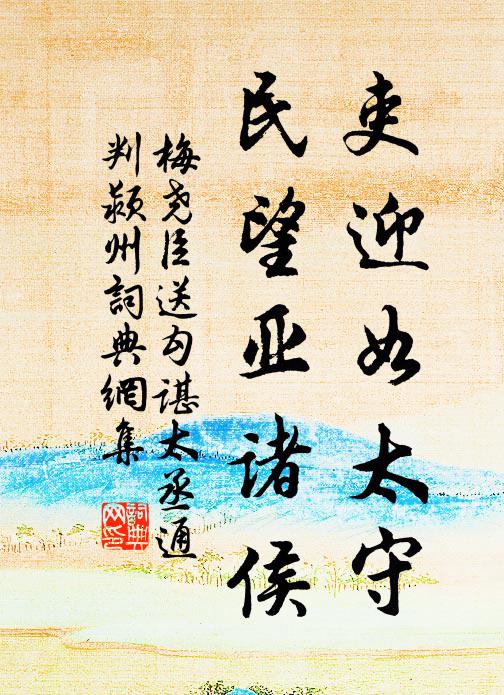 吏迎如太守
民望亚诸侯
梅尧臣送勾谌太丞通
判颍州詞典網集
詞典
网印